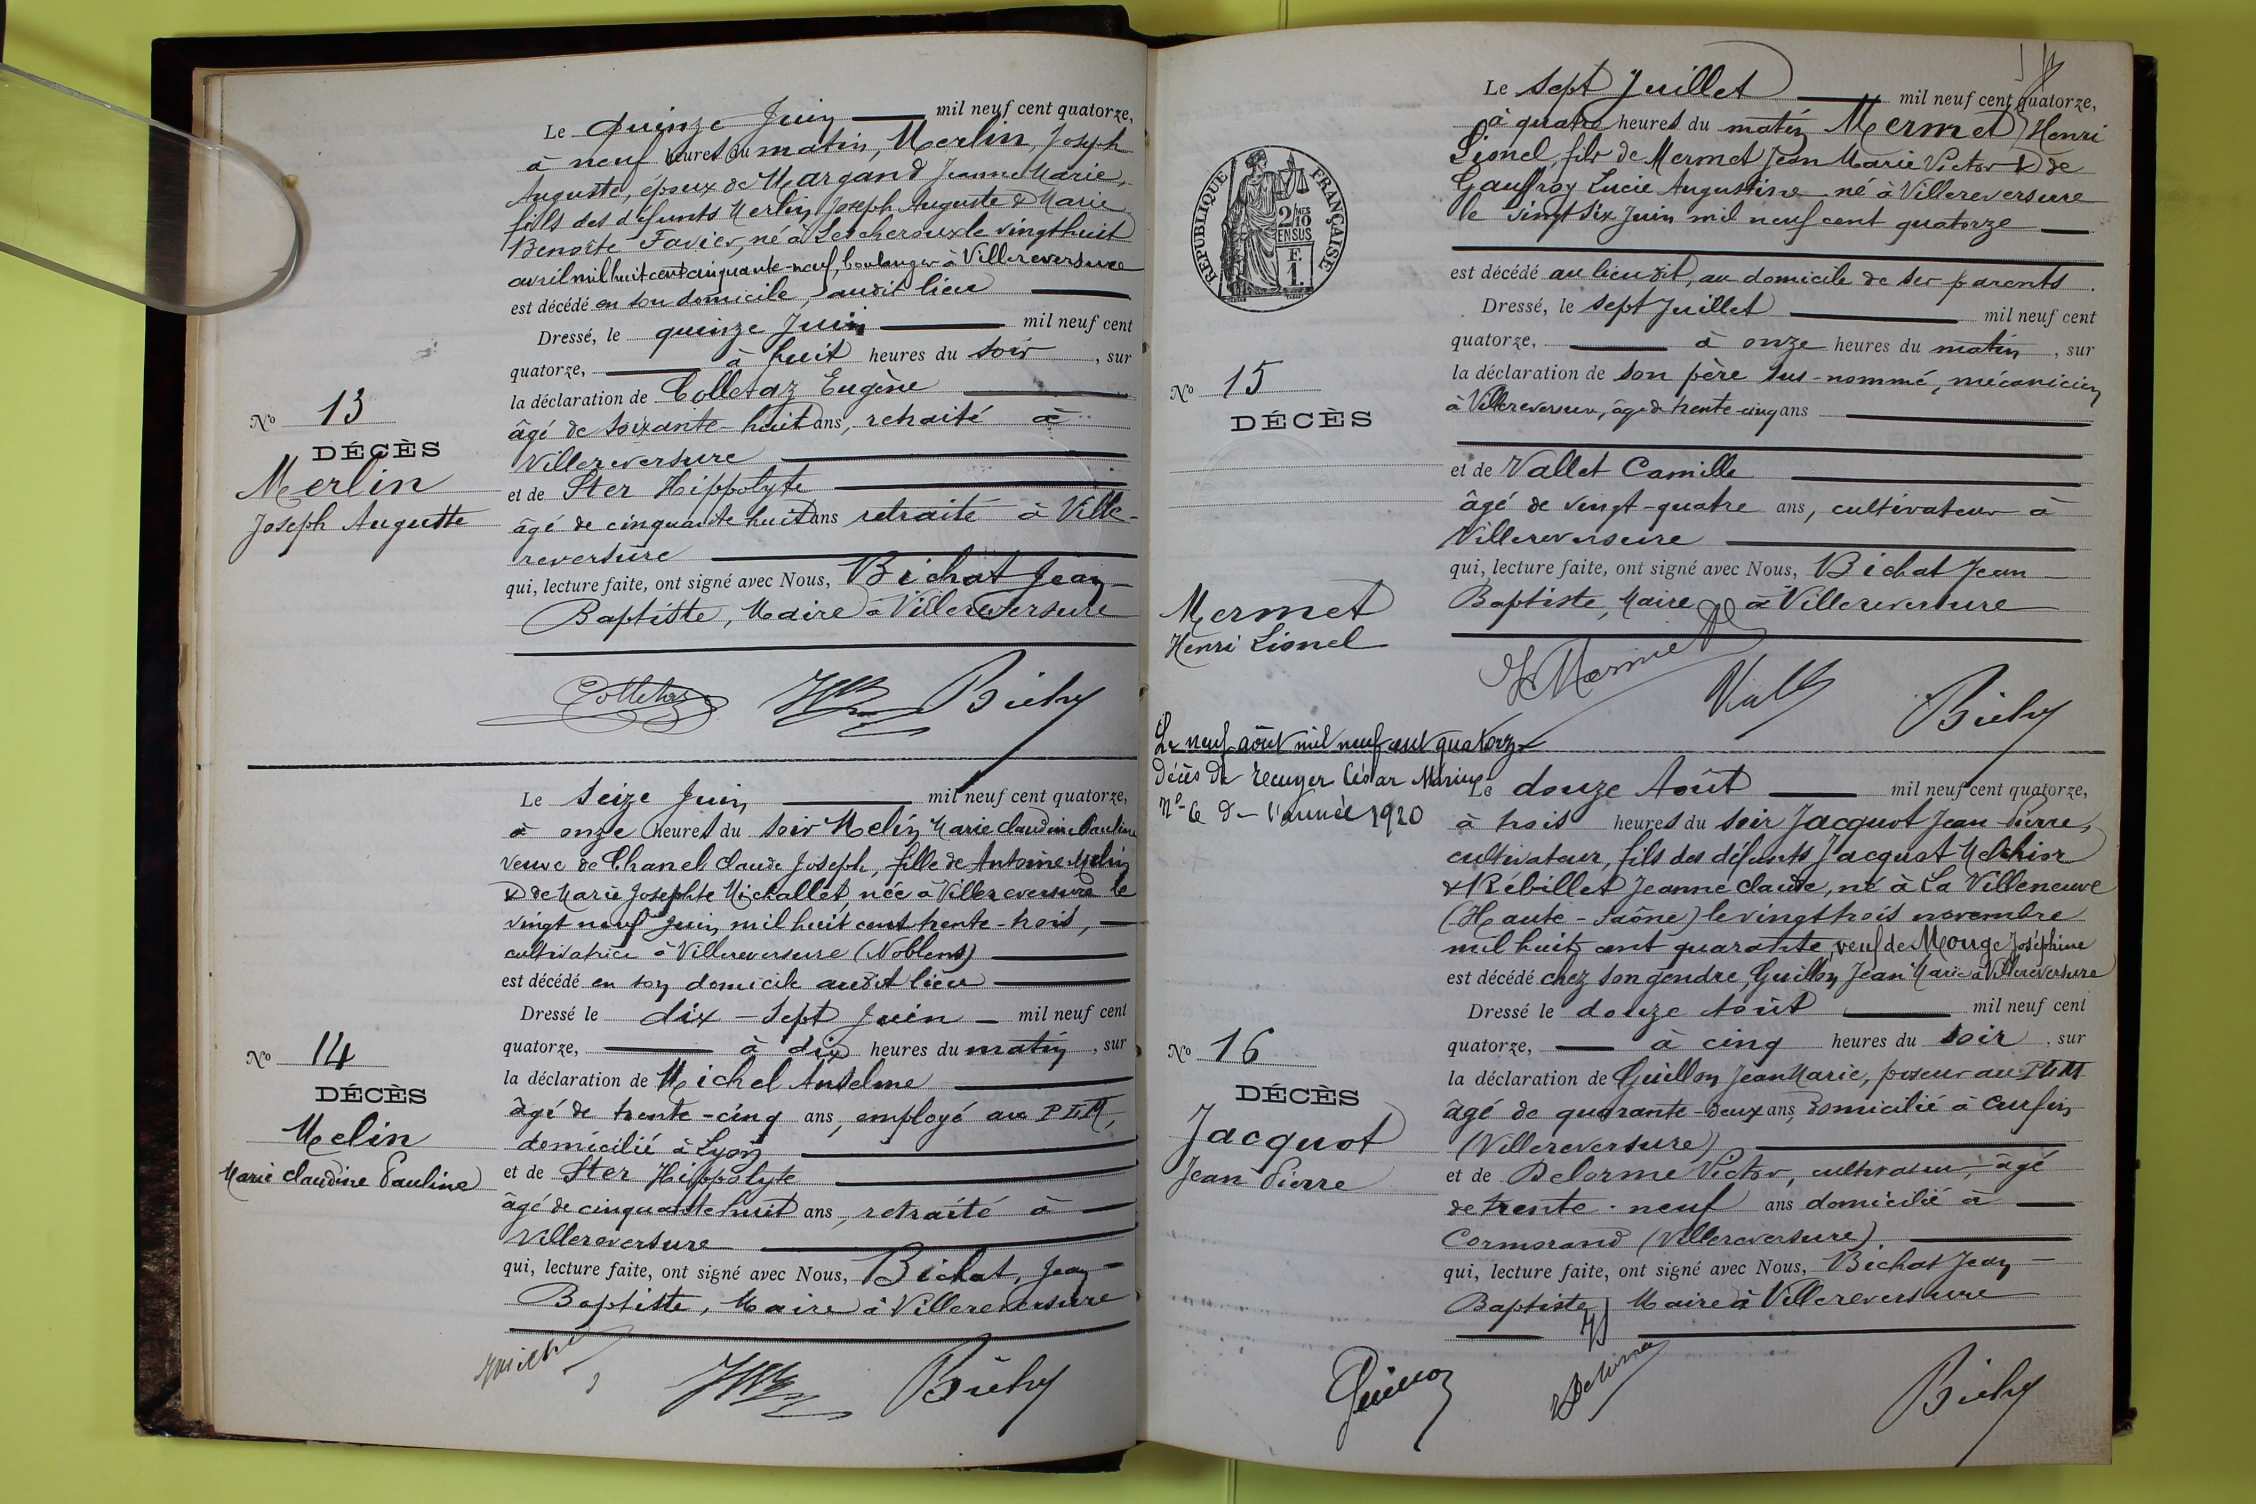 Le quinze Juin mil neuf cent quatorze,
à neuf heures du matin, Merlin, Joseph
Auguste, époux de Margand Jeanne Marie,
fils des défunts Merlin Joseph Auguste & Marie
Benoîte Favier, né à Lescheroux le vingt huit
avril mil huit cent cinquante-neuf, boulanger à Villereversure
est décédé en son domicile, audit lieu
Dressé, le quinze Juin mil neuf cent
quatorze, à huit heures du soir, sur
la déclaration de Colletaz Eugène
âgé de soixante-huit ans, retraité à
Villereversure
et de Ster Hippolyte
âgé de cinquante huit ans retraité à Ville-
reversure
qui, lecture faite, ont signé avec Nous, Bichat Jean-
Baptiste, Maire à Villereversure
No 13
DÉCÈS
Merlin
Joseph Auguste
Colletaz
Le seize Juin mil neuf cent quatorze,
à onze heures du soir Melin Marie Claudine Pauline
veuve de Chanel Claude Joseph, fille de Antoine Melin
& de Marie Josephte Michallet, née à Villereversure le
vingt neuf Juin mil huit cent trente-trois,
cultivatrice à Villereversure (Noblens)
est décédé en son domicile audit lieu
Dressé le dix-sept Juin mil neuf cent
quatorze, à dix heures du matin, sur
la déclaration de Michel Anselme
âgé de trente-cinq ans, employé au PLM,
domicilié à Lyon
et de Ster Hippolyte
âgé de cinquante huit ans, retraité à
Villereversure
qui, lecture faite, ont signé avec Nous, Bichat, Jean-
Baptiste, Maire à Villereversure
No 14
DÉCÈS
Melin
Marie Claudine Pauline
Michel
Le sept Juillet mil neuf cent quatorze,
à quatre heures du matin Mermet Henri
Lionel, fils de Mermet Jean Marie Victor & de
Gauffroy Lucie Augustine né à Villereversure
le vingt six Juin mil neuf cent quatorze
est décédé au lieu dit, au domicile de ses parents.
Dressé, le sept Juillet mil neuf cent
quatorze, à onze heures du matin, sur
la déclaration de son père sus-nommé, mécanicien
à Villereversure, âgé de trente-cinq ans
et de Vallet Camille
âgé de vingt-quatre ans, cultivateur à
Villereversure
qui, lecture faite, ont signé avec Nous, Bichat Jean-
Baptiste, Maire à Villereversure
RÉPUBLIQUE FRANÇAISE
2/10
EN SUS
F.
1.
No 15
DÉCÈS
Mermet
Henri Lionel
Mermet
Le neuf août mil neuf cent quatorze
décès de Ecuyer César Marius
No 6 de l'année 1920
Le douze Août mil neuf cent quatorze,
à trois heures du soir Jacquot Jean Pierre,
cultivateur, fils des défunts Jacquot Melchior
& Rébillet Jeanne Claude, né à La Villeneuve
(Haute-Saône) le vingt trois novembre
mil huit cent quarante, veuf de Mouge Joséphine
est décédé chez son gendre, Guillon Jean Marie à Villereversure
Dressé le douze Août mil neuf cent
quatorze, à cinq heures du soir, sur
la déclaration de Guillon Jean Marie, poseur au PLM
âgé de quarante-deux ans, domicilié à Curfin
(Villereversure)
et de Delorme Victor, cultivateur, âgé
de trente-neuf ans domicilié à
Cormorand (Villereversure)
qui, lecture faite, ont signé avec Nous, Bichat Jean-
Baptiste, Maire à Villereversure
No 16
DÉCÈS
Jacquot
Jean Pierre
Guillon
Delorme